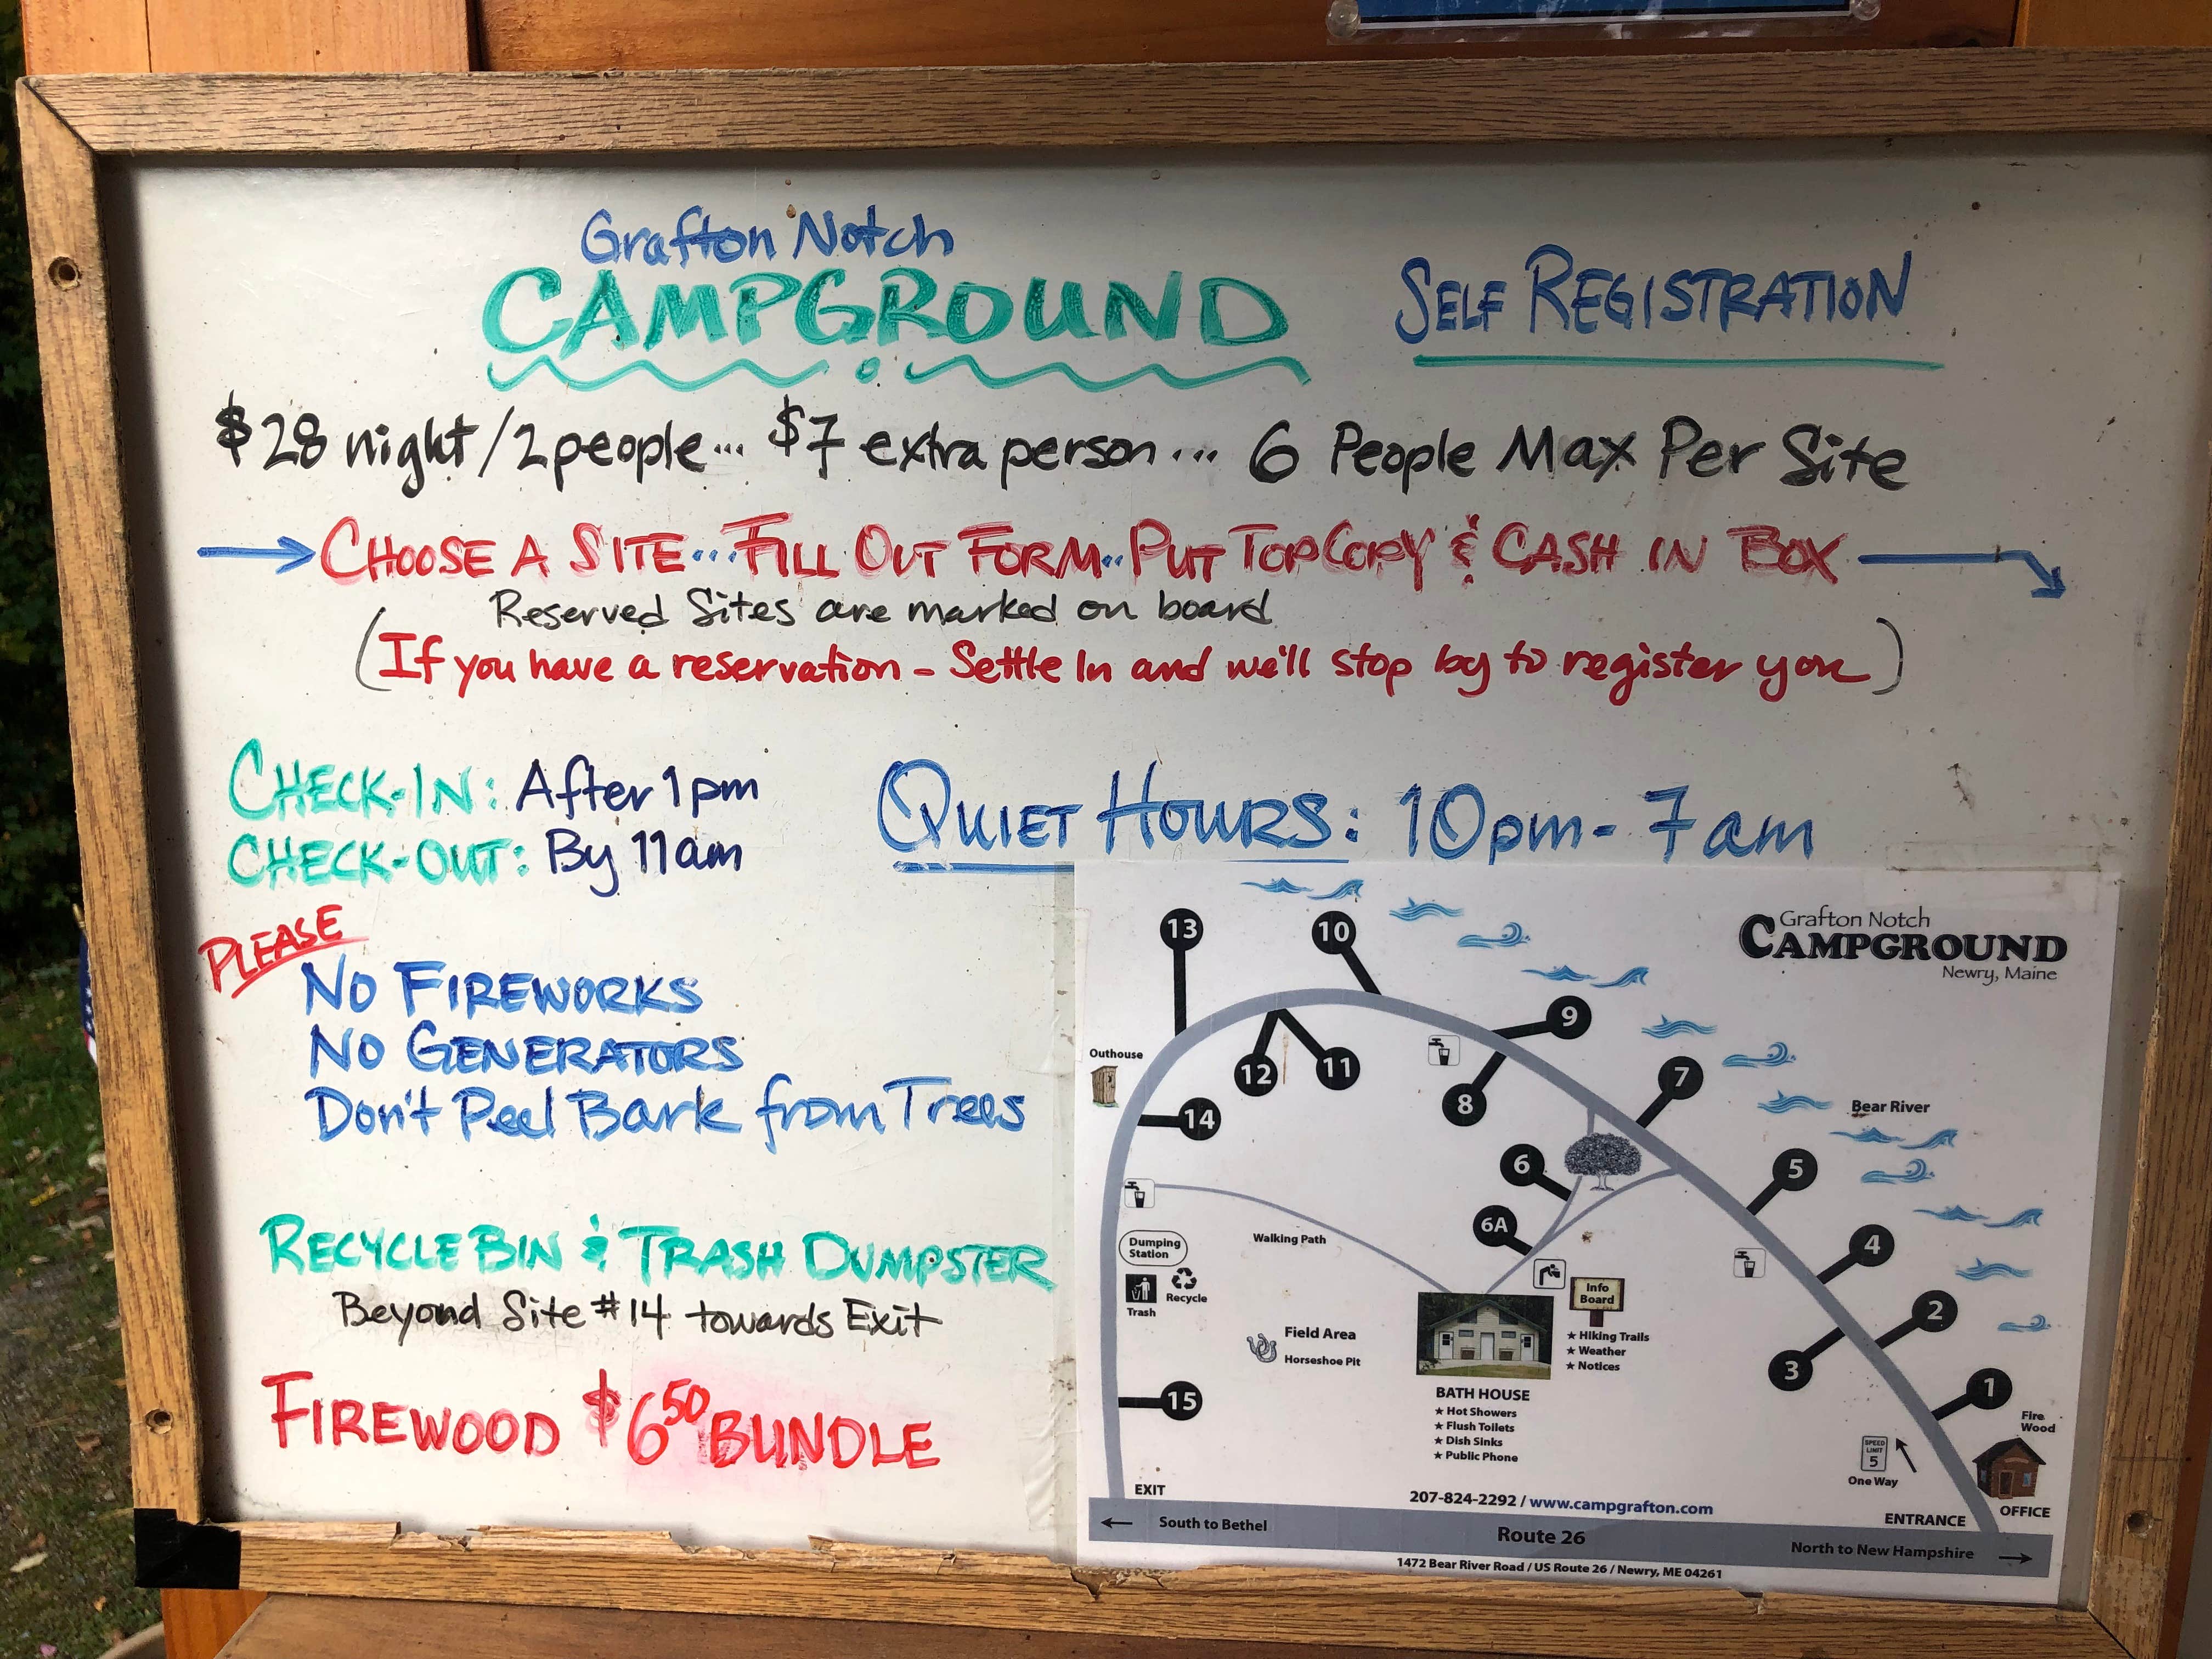 Grafton Notch
CAMPGROUND
SELF REGISTRATION
$28 night/2 people... $7 extra person... 6 People Max Per Site
→ CHOOSE A SITE...FILL OUT FORM..PUT TOP COPY & CASH IN BOX
Reserved Sites are marked on board
(If you have a reservation - Settle In and we'll stop by to register you)
CHECK-IN: After 1pm
CHECK-OUT: By 11am
QUIET HOURS: 10pm-7am
PLEASE
NO FIREWORKS
NO GENERATORS
Don't Peel Bark from Trees
RECYCLE BIN & TRASH DUMPSTER
Beyond Site #14 towards Exit
FIREWOOD $6 50 BUNDLE
Grafton Notch
CAMPGROUND
Newry, Maine
13
10
9
12
11
8
7
Outhouse
14
Bear River
6
5
6A
4
Dumping
Station
Walking Path
Trash
Recycle
Info
Board
★ Hiking Trails
★ Weather
★ Notices
Field Area
Horseshoe Pit
2
3
1
15
BATH HOUSE
★ Hot Showers
★ Flush Toilets
★ Dish Sinks
★ Public Phone
Fire
Wood
SPEED
LIMIT
5
One Way
EXIT
207-824-2292 / www.campgrafton.com
ENTRANCE
OFFICE
← South to Bethel
Route 26
North to New Hampshire →
1472 Bear River Road / US Route 26 / Newry, ME 04261